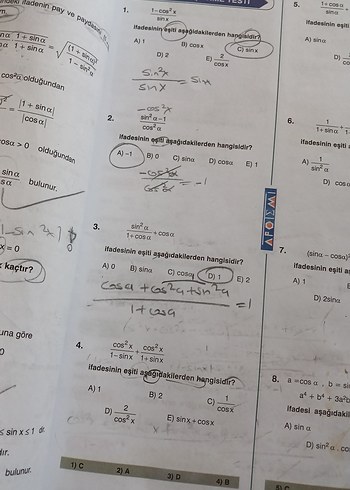 ndeki ifadenin pay ve paydasını
1 + sinα
1 + sinα
(1 + sinα)
1 – sin²α
cos²α olduğundan
|1 + sinα|
|cosα|
cosα > 0 olduğundan
sinα
bulunur.
x = 0
kaçtır?
una göre
≤ sin x ≤ 1 dir.
bulunur.
TESTİ
1. 1–cos²x / sinx
ifadesinin eşiti aşağıdakilerden hangisidir?
A) 1 B) cosx C) sinx
D) 2 E) 2/cosx
sin²x / sinx = sinx
–cos²x
2. sin²α–1 / cos²α
ifadesinin eşiti aşağıdakilerden hangisidir?
A) –1 B) 0 C) sinα D) cosα E) 1
–cos²x / cos²x = –1
3. sin²α / 1+cosα + cosα
ifadesinin eşiti aşağıdakilerden hangisidir?
A) 0 B) sinα C) cosα D) 1 E) 2
cosα + cos²α + sin²α / 1+cosα = 1
4. cos²x / 1–sinx + cos²x / 1+sinx
ifadesinin eşiti aşağıdakilerden hangisidir?
A) 1 B) 2 C) 1/cosx
D) 2/cos²x E) sinx + cosx
1) C 2) A 3) D 4) B
APOIEMI
5. 1 + cosα
sinα
ifadesinin eşiti
A) sinα
6. 1 / 1 + sinα
ifadesinin eşiti a
A) 1/sin²α
D) cosα
7. (sinα – cosα)
ifadesinin eşiti aş
A) 1
D) 2sinα
8. a = cosα , b = si
a⁴ + b⁴ + 3a²b
ifadesi aşağıdaki
A) sinα
D) sin²α
5) C